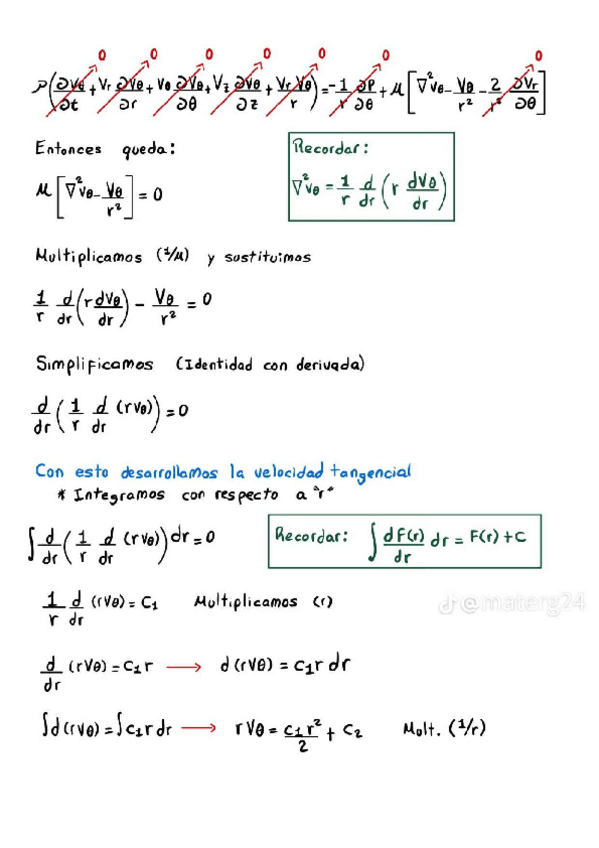 0 0 0 0 0 0 0
ρ(∂Vθ/∂t + Vr ∂Vθ/∂r + Vθ ∂Vθ/∂θ + Vz ∂Vθ/∂z + Vr Vθ/r) = -1/r ∂P/∂θ + μ[∇²Vθ - Vθ/r² - 2/r² ∂Vr/∂θ]
Entonces queda:
μ[∇²Vθ - Vθ/r²] = 0
Recordar:
∇²Vθ = 1/r d/dr (r dVθ/dr)
Multiplicamos (1/μ) y sustituimos
1/r d/dr(r dVθ/dr) - Vθ/r² = 0
Simplificamos (Identidad con derivada)
d/dr (1/r d/dr (rVθ)) = 0
Con esto desarrollamos la velocidad tangencial
* Integramos con respecto a "r"
∫ d/dr (1/r d/dr (rVθ)) dr = 0
Recordar: ∫ dF(r)/dr dr = F(r) + C
1/r d/dr (rVθ) = C₁ Multiplicamos (r)
@materg24
d/dr (rVθ) = C₁r → d(rVθ) = C₁r dr
∫d(rVθ) = ∫C₁r dr → rVθ = C₁r²/2 + C₂ Molt. (1/r)